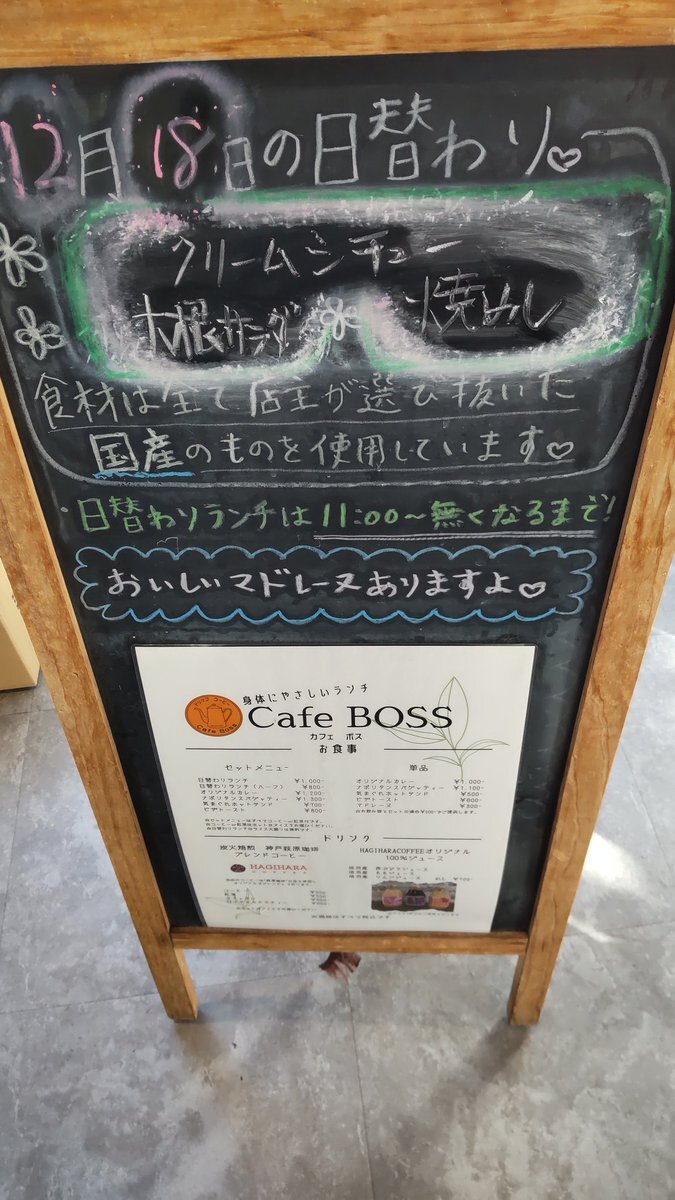 12月18日の日替わり♡
クリームシチュー
大根サラダ 焼めし
食材は全て店主が選び抜いた
国産のものを使用しています♡
・日替わりランチは11:00〜無くなるまで!
おいしいマドレーヌありますよ♡
身体にやさしいランチ
Cafe BOSS
カフェ ボス
お食事
セットメニュー
日替わりランチ ¥1,000-
日替わりランチ(ハーフ) ¥800-
オリジナルカレー ¥1,200-
ナポリタンスパゲッティー ¥1,300-
気まぐれホットサンド ¥700-
ピザトースト ¥800-
単品
オリジナルカレー ¥1,000-
ナポリタンスパゲッティー ¥1,100-
気まぐれホットサンド ¥500-
ピザトースト ¥600-
マドレーヌ
ドリンク
炭火焙煎 神戸萩原珈琲
ブレンドコーヒー
HAGIHARA
COFFEE
HAGIHARACOFFEEオリジナル
100%ジュース